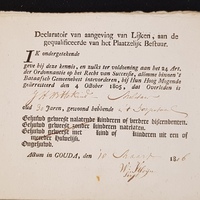 Declaratoir van aangeving van Lijken, aan de
gequalificeerde van het Plaatzelijk Bestuur.
IK ondergetekende
geve bij deze kennis, en zulks ter voldoening aan het 24 Art.
der Ordonnantie op het Recht van Successie, alomme binnen't
Bataafsch Gemeenebest intevorderen, bij Hun Hoog Mogende
gearresteerd den 4 October 1805, dat Overleden is
oud 30 Jaren, gewoond hebbende
Gehuwd geweest nalatende kinderen of verdere descendenten.
Gehuwd geweest zonder kinderen natelaten.
Gehuwd geweest met kind of kinderen uit een of
meerder Huwelijken.
Ongehuwd.
Actum in GOUDA, den 1806